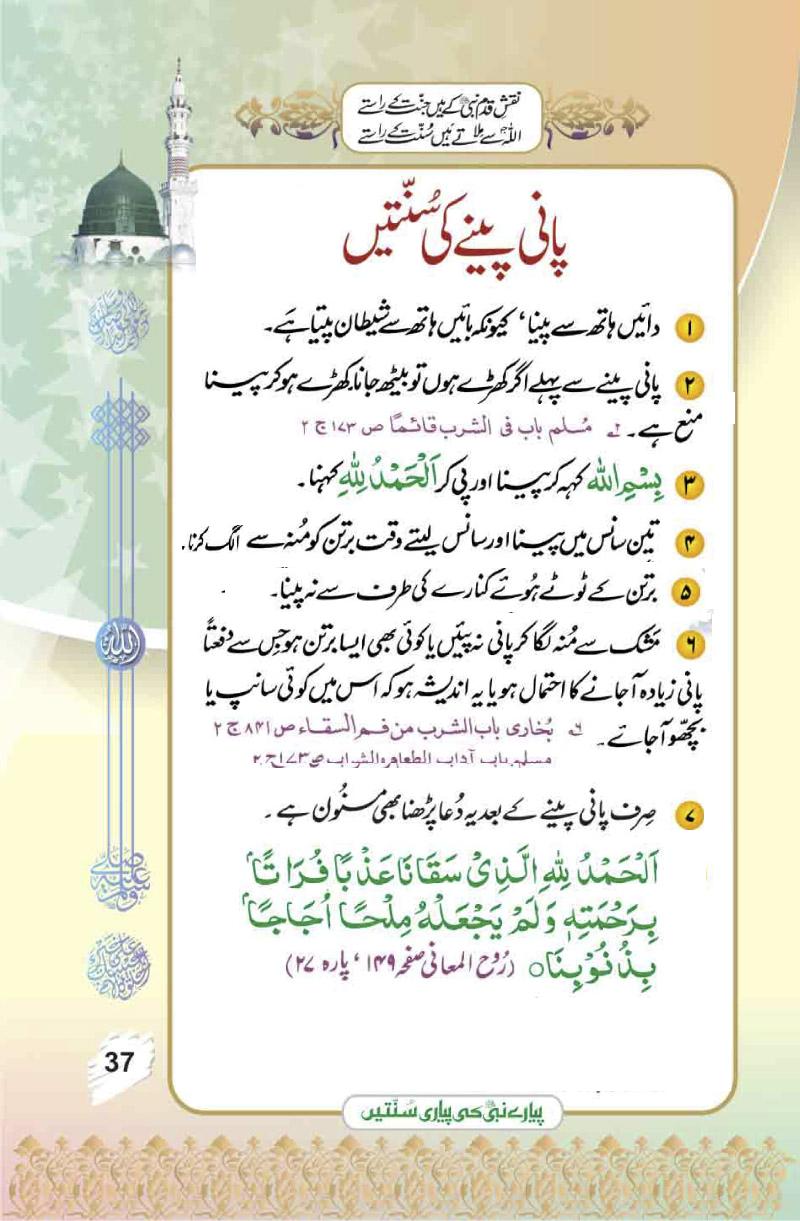 نقش قدم نبیؐ کے ہیں جنت کے راستے
اللہ سے ملاتے ہیں سُنّت کے راستے
پانی پینے کی سُنّتیں
۱ دائیں ہاتھ سے پینا، کیونکہ بائیں ہاتھ سے شیطان پیتا ہے۔
۲ پانی پینے سے پہلے اگر کھڑے ہوں تو بیٹھ جانا، کھڑے ہو کر پینا
منع ہے۔ ۲ے مُسلم باب فی الشرب قائمًا ص ۱۷۳ ج ۲
۳ بِسْمِ اللہ کہہ کر پینا اور پی کر اَلْحَمْدُ لِلّٰہِ کہنا۔
۴ تین سانس میں پینا اور سانس لیتے وقت برتن کو مُنہ سے الگ کرنا۔
۵ برتن کے ٹوٹے ہوئے کنارے کی طرف سے نہ پینا۔
۶ مَشک سے مُنہ لگا کر پانی نہ پئیں یا کوئی بھی ایسا برتن ہو جس سے دفعتًا
پانی زیادہ آجانے کا احتمال ہو یا یہ اندیشہ ہو کہ اس میں کوئی سانپ یا
بچھّو آجائے۔ ۶ے بُخاری باب الشرب من فم السقاء ص ۸۴۱ ج ۲
مسلم باب آداب الطعام والشراب ص ۱۷۳ ج ۲
۷ صِرف پانی پینے کے بعد یہ دُعا پڑھنا بھی مسنُون ہے۔
اَلْحَمْدُ لِلّٰہِ الَّذِیْ سَقَانَا عَذْبًا فُرَاتًا
بِرَحْمَتِہٖ وَلَمْ یَجْعَلْہُ مِلْحًا اُجَاجًا
بِذُنُوْبِنَا○ (رُوح المعانی صفحہ ۱۴۹، پارہ ۲۷)
اللہ
37
پیارے نبیؐ کی پیاری سُنّتیں